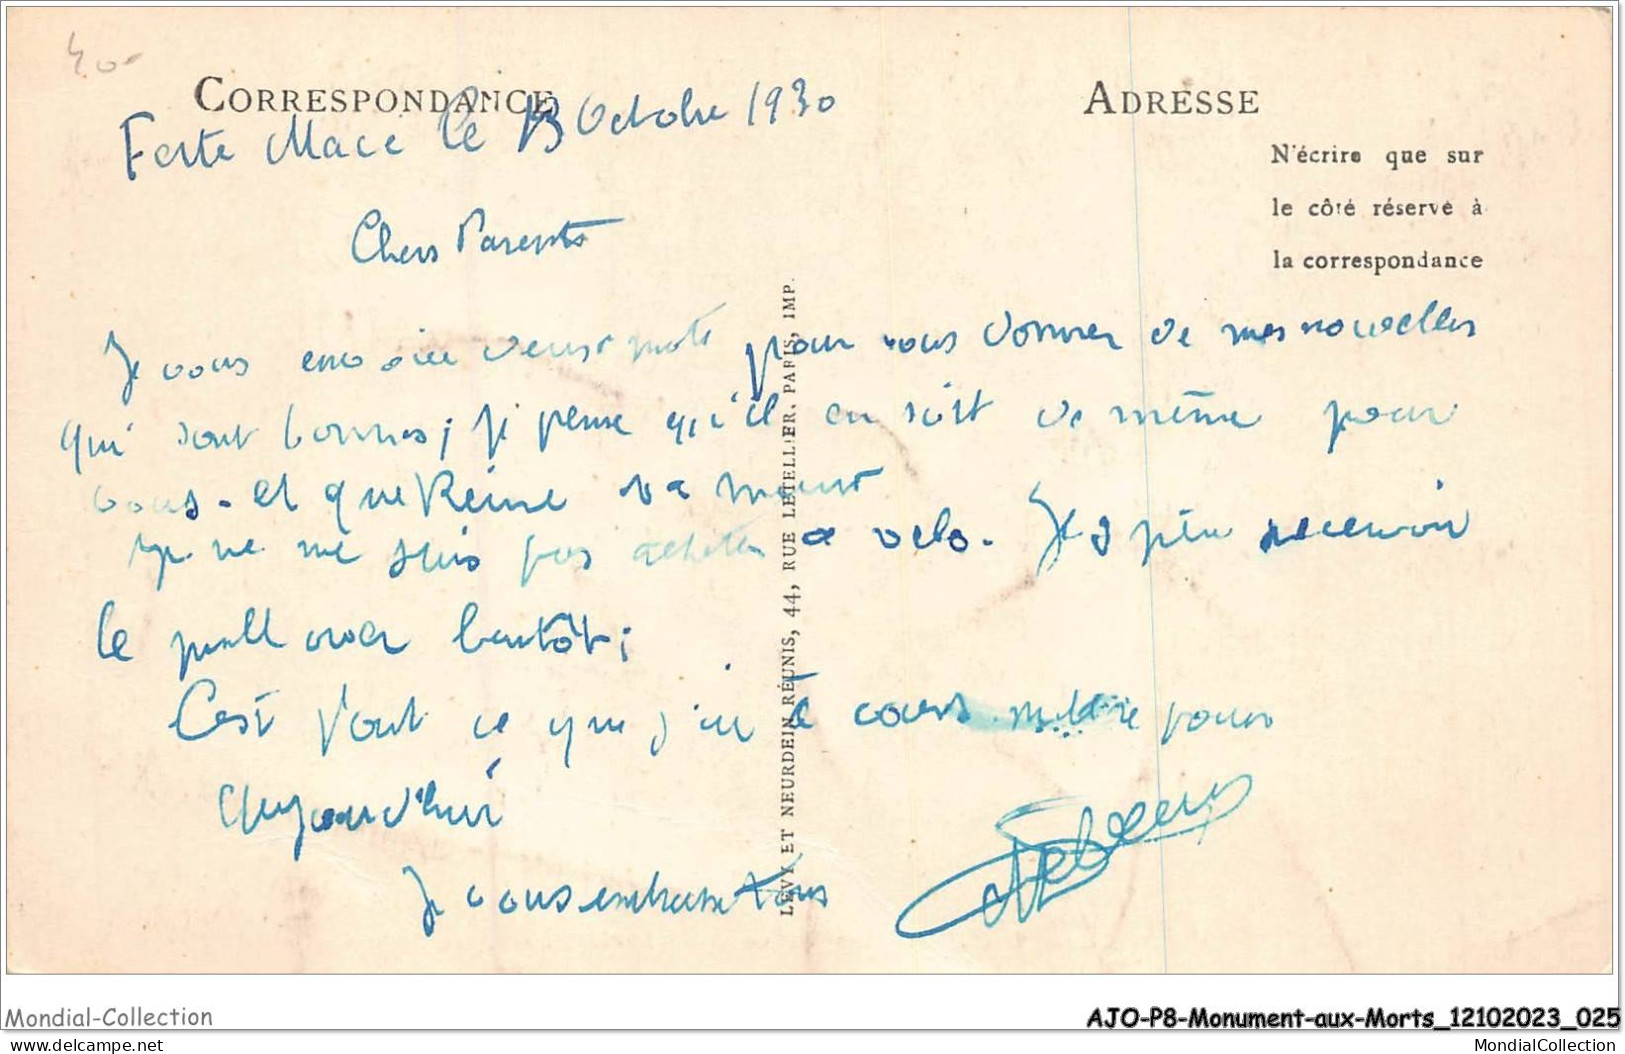 40-
CORRESPONDANCE
ADRESSE
Ferte Mace le 13 Octobre 1930
N'écrire que sur
le côté réservé à
la correspondance
Chers Parents
Je vous envoie deux mots pour vous donner de mes nouvelles
qui sont bonnes; je pense qu'il en soit de même pour
vous. et que Reine va mieux
Je ne me suis pas acheter de velo. Je pense recevoir
le pull over bientôt;
C'est tout ce que j'ai à vous mettre pour
aujourd'hui
Je vous embrasse tous
LEVY ET NEURDEIN RÉUNIS, 44, RUE LETELLIER, PARIS, IMP.
Mondial-Collection
AJO-P8-Monument-aux-Morts_12102023_025
www.delcampe.net
MondialCollection